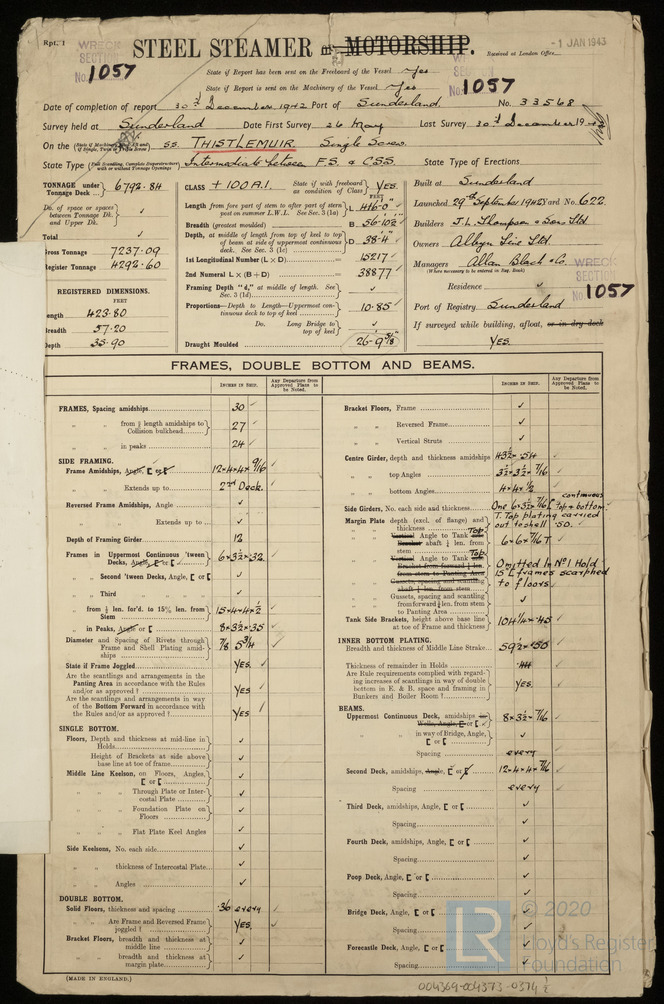 Rpt. 1
WRECK SECTION
No. 1057
STEEL STEAMER or MOTORSHIP.
-1 JAN 1943
Received at London Office
State if Report has been sent on the Freeboard of the Vessel Yes
State if Report is sent on the Machinery of the Vessel Yes
No. 1057
Date of completion of report 30th December 1942 Port of Sunderland No. 33568
Survey held at Sunderland Date First Survey 26 May Last Survey 30th December 19
On the SS. THISTLEMUIR Single Screw.
State Type Intermediate between F.S. & C.S.S. State Type of Erections
TONNAGE under Tonnage Deck 6792.84
Do. of space or spaces between Tonnage Dk. and Upper Dk. ✓
Total ✓
Gross Tonnage 7237.09
Register Tonnage 4292.60
REGISTERED DIMENSIONS.
FEET
Length 423.80
Breadth 57.20
Depth 35.90
CLASS + 100 A.1. State if with freeboard as condition of Class YES
Length from fore part of stem to after part of stern post on summer L.W.L. See Sec. 3 (1a) L 416-0
Breadth (greatest moulded) B 56-10½
Depth, at middle of length from top of keel to top of beam at side of uppermost continuous deck. See Sec. 3 (1c) D 38-4
1st Longitudinal Number (L × D) 15217
2nd Numeral L × (B + D) 38877
Framing Depth "d," at middle of length. See Sec. 3 (1d) ✓
Proportions—Depth to Length—Uppermost continuous deck to top of keel 10.85
Do. Long Bridge to top of keel ✓
Draught Moulded 26-9⅝
Built at Sunderland
Launched 29th September 1942 Yard No. 622
Builders J.L. Thompson & Sons Ltd
Owners Albyn Line Ltd
Managers Allan Black & Co.
(Where necessary to be entered in Reg. Book)
Residence
WRECK SECTION
No. 1057
Port of Registry Sunderland
If surveyed while building, afloat, or in dry dock
YES.
FRAMES, DOUBLE BOTTOM AND BEAMS.
INCHES IN SHIP. Any Departure from Approved Plans to be Noted.
FRAMES, Spacing amidships 30
" " from ⅕ length amidships to Collision bulkhead 27
" " in peaks 24
SIDE FRAMING.
Frame Amidships, Angle, [ or 12×4×4×9/16
" " Extends up to 2nd Deck.
Reversed Frame Amidships, Angle ✓
" " Extends up to ✓
Depth of Framing Girder 12
Frames in Uppermost Continuous 'tween Decks, Angle, [ or [ 6×3½×.32
" " Second 'tween Decks, Angle, [ or [ ✓
" " Third " " ✓
" " from ⅕ len. for'd. to 15% len. from Stem 15×4×4×½
" " in Peaks, Angle or [ 8×3½×.35
Diameter and Spacing of Rivets through Frame and Shell Plating amidships ⅞ 5¾
State if Frame Joggled YES.
Are the scantlings and arrangements in the Panting Area in accordance with the Rules and/or as approved? YES
Are the scantlings and arrangements in way of the Bottom Forward in accordance with the Rules and/or as approved? YES
SINGLE BOTTOM.
Floors, Depth and thickness at mid-line in Holds ✓
Height of Brackets at side above base line at toe of frame ✓
Middle Line Keelson, on Floors, Angles, [ or [ ✓
" " Through Plate or Intercostal Plate ✓
" " Foundation Plate on Floors ✓
" " Flat Plate Keel Angles ✓
Side Keelsons, No. each side ✓
" " thickness of Intercostal Plate ✓
" " Angles ✓
DOUBLE BOTTOM.
Solid Floors, thickness and spacing .36 every
" " Are Frame and Reversed Frame joggled? YES.
Bracket Floors, breadth and thickness at middle line ✓
" " breadth and thickness at margin plate ✓
INCHES IN SHIP. Any Departure from Approved Plans to be Noted.
Bracket Floors, Frame ✓
" " Reversed Frame ✓
" " Vertical Struts ✓
Centre Girder, depth and thickness amidships 43½ × .54
" " top Angles 3½×3½×7/16
" " bottom Angles 4×4×½
Side Girders, No. each side and thickness One 6×3½×7/16 [ continuous top & bottom
Margin Plate depth (excl. of flange) and thickness T. Top plating carried out to shell .50.
" " Vertical Angle to Tank Top Bracket abaft ¼ len. from stem 6×6×7/16 T
" " Vertical Angle to Tank Top Bracket from forward ¼ len. from stem to Panting Area Omitted In No 1 Hold
" " Gussets, spacing and scantling abaft ¼ len. from stem 15 [ frames scarphed to floors
" " Gussets, spacing and scantling from forward ¼ len. from stem to Panting Area ✓
Tank Side Brackets, height above base line at toe of Frame and thickness 104¼ × .45
INNER BOTTOM PLATING.
Breadth and thickness of Middle Line Strake 59½×.50
Thickness of remainder in Holds .44
Are Rule requirements complied with regarding increases of scantlings in way of double bottom in E. & B. space and framing in Bunkers and Boiler Room? YES.
BEAMS.
Uppermost Continuous Deck, amidships 8×3½×7/16
" " in way of Bridge, Angle, [ or [ ✓
Spacing every
Second Deck, amidships, Angle, [ or 12×4×4×7/16
Spacing every
Third Deck, amidships, Angle, [ or [ ✓
Spacing ✓
Fourth Deck, amidships, Angle, [ or [ ✓
Spacing ✓
Poop Deck, Angle, [ or [ ✓
Spacing ✓
Bridge Deck, Angle, [ or [ ✓
Spacing ✓
Forecastle Deck, Angle, [ or [ ✓
Spacing ✓
(MADE IN ENGLAND.)
LR © 2020
Lloyd's Register
Foundation
004369-004373-0374